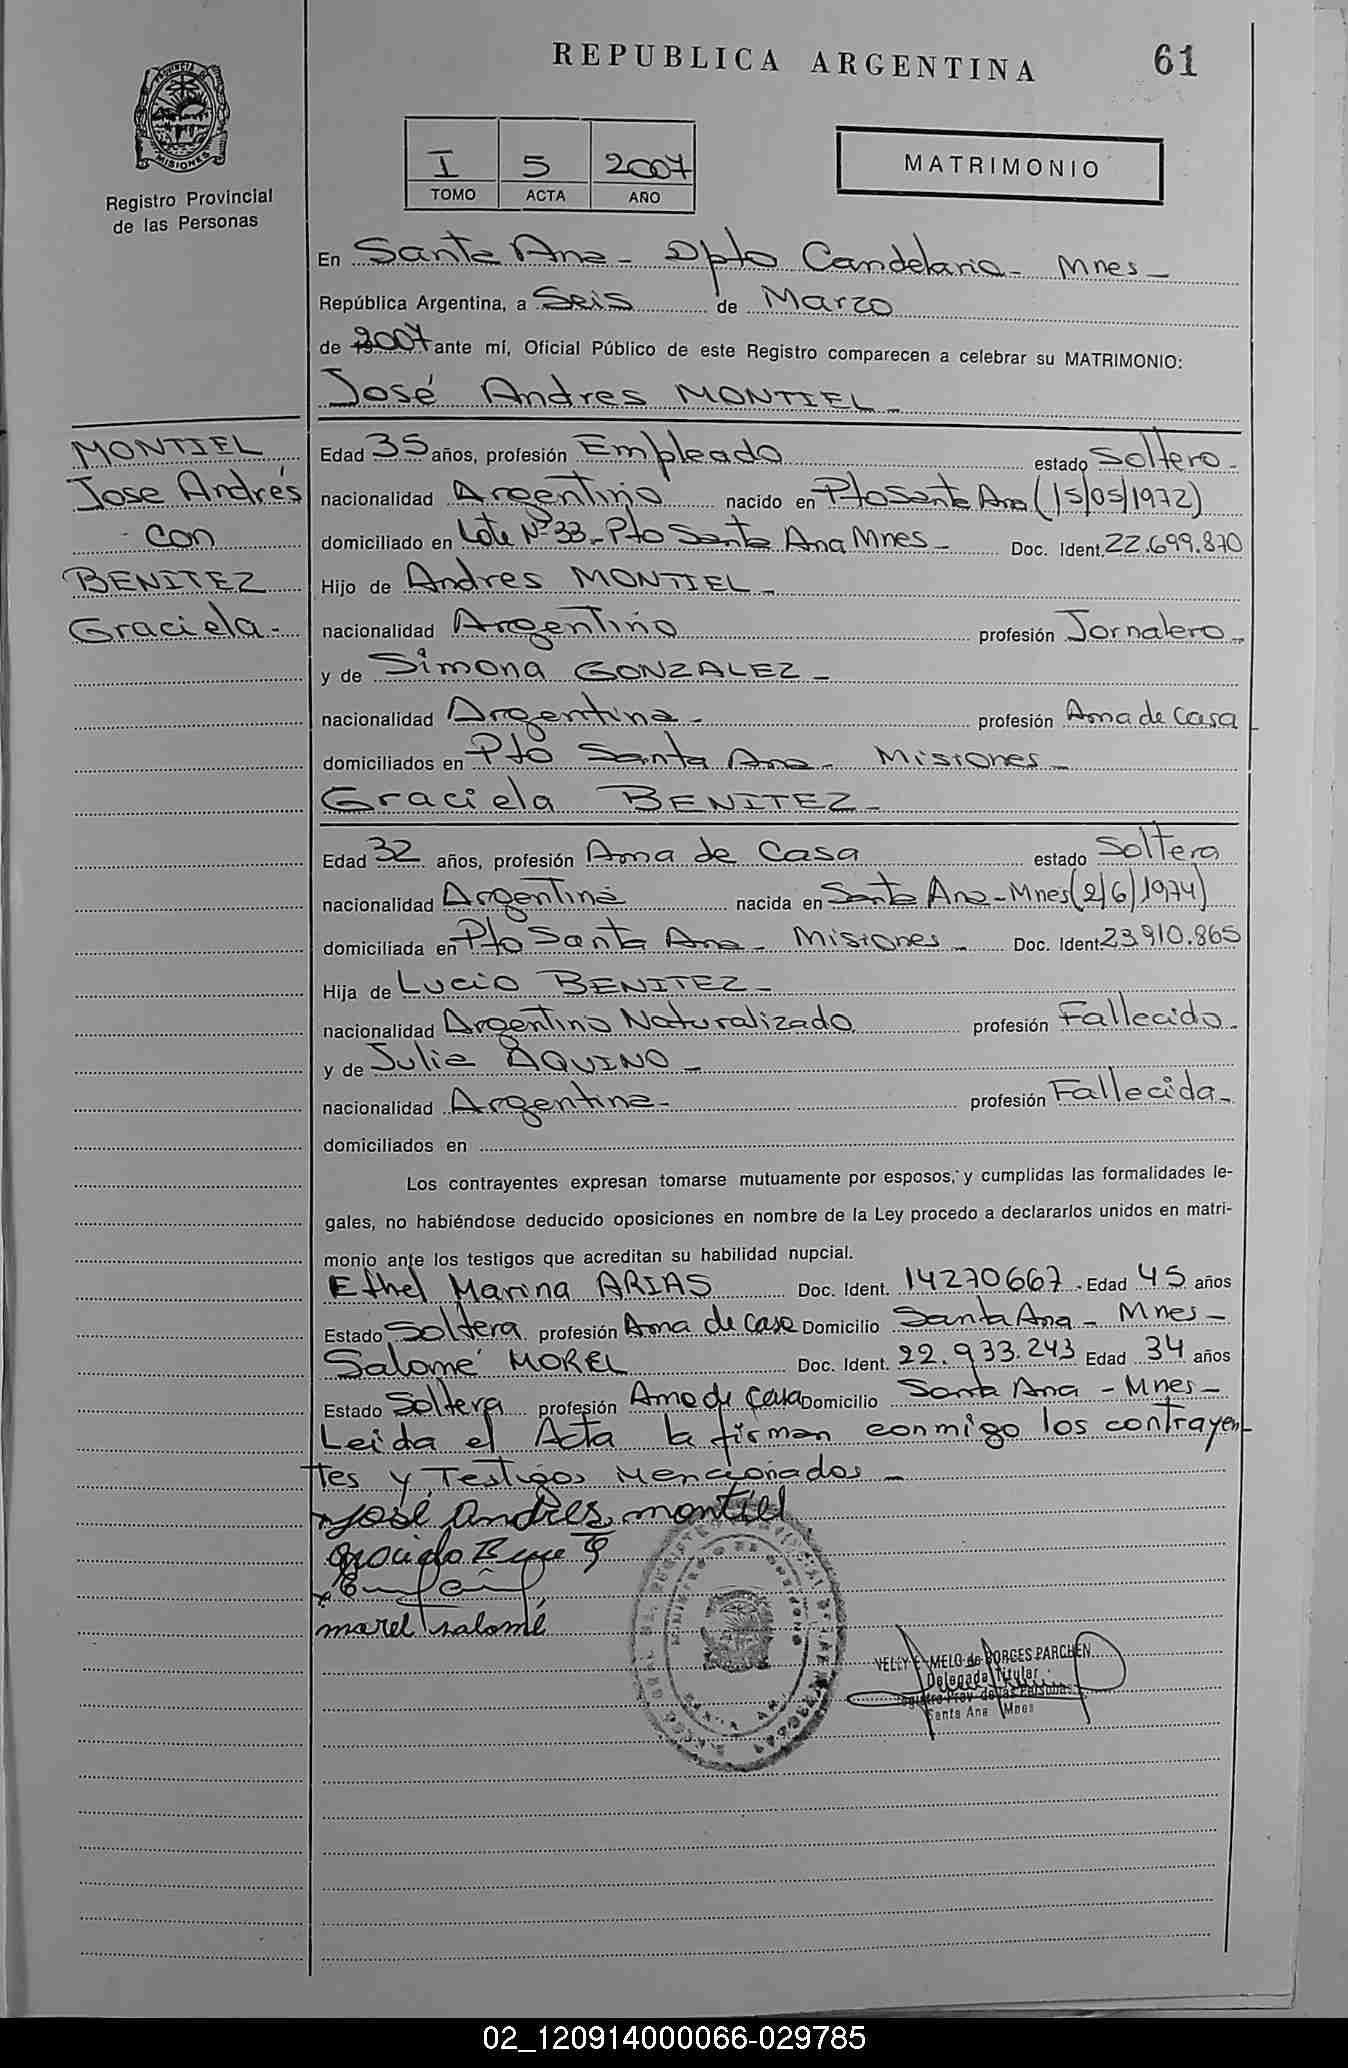 REPUBLICA ARGENTINA
61
MISIONES
Registro Provincial
de las Personas
I 5 2007
TOMO ACTA AÑO
MATRIMONIO
En Santa Ana - Dpto Candelaria - Mnes -
República Argentina, a Seis de Marzo
de 2007 ante mí, Oficial Público de este Registro comparecen a celebrar su MATRIMONIO:
José Andres MONTIEL -
MONTIEL
Jose Andrés
con
BENITEZ
Graciela -
Edad 35 años, profesión Empleado estado Soltero -
nacionalidad Argentino nacido en Pto Santa Ana (15/05/1972)
domiciliado en Lote Nº 33 - Pto Santa Ana Mnes - Doc. Ident. 22.699.870
Hijo de Andres MONTIEL -
nacionalidad Argentino profesión Jornalero -
y de Simona GONZALEZ -
nacionalidad Argentina - profesión Ama de casa
domiciliados en Pto Santa Ana - Misiones -
Graciela BENITEZ -
Edad 32 años, profesión Ama de Casa estado Soltera
nacionalidad Argentina nacida en Santa Ana - Mnes (2/6/1974)
domiciliada en Pto Santa Ana - Misiones - Doc. Ident 23910.865
Hija de Lucio BENITEZ -
nacionalidad Argentino Naturalizado profesión Fallecido -
y de Julia AQUINO -
nacionalidad Argentina - profesión Fallecida -
domiciliados en
Los contrayentes expresan tomarse mutuamente por esposos, y cumplidas las formalidades le-
gales, no habiéndose deducido oposiciones en nombre de la Ley procedo a declararlos unidos en matri-
monio ante los testigos que acreditan su habilidad nupcial.
Ethel Marina ARIAS Doc. Ident. 14270667 - Edad 45 años
Estado Soltera profesión Ama de casa Domicilio Santa Ana - Mnes -
Salomé MOREL Doc. Ident. 22.933.243 Edad 34 años
Estado Soltera profesión Ama de casa Domicilio Santa Ana - Mnes -
Leida el Acta la firman conmigo los contrayen-
tes y Testigos Mencionados -
José Andrés montiel
morel Salomé
NELLY E. MELO de BORGES PARCHEN
Delegada Titular
Registro Prov. de las Personas
Santa Ana Mnes
02_120914000066-029785